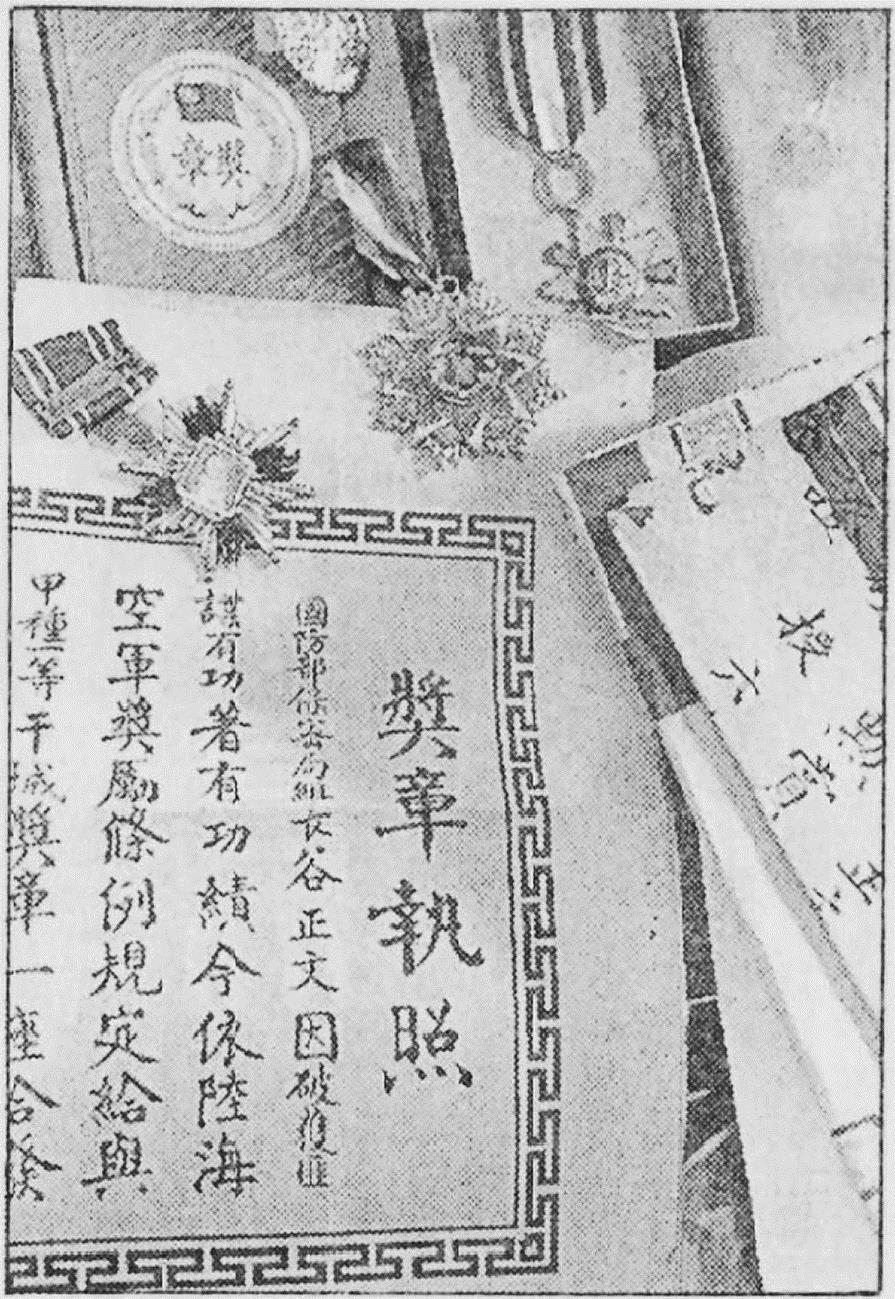 獎章
獎章執照
國防部保密局組長谷正文因破獲匪
諜有功著有功績今依陸海
空軍獎勵條例規定給與
甲種一等干城獎章一座合發
授
六